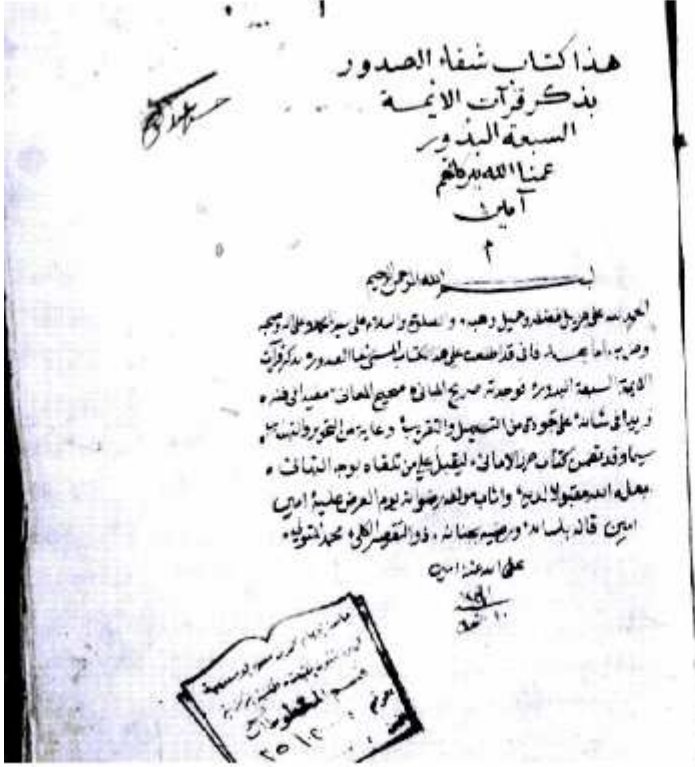 هذا كتاب شفاء الصدور
بذكر قرآت الائمة
السبعة البدور
عمنا الله ببركاتهم
آمين
م
بسم الله الرحمن الرحيم
الحمد لله على جزيل فضله وجميل وهبه والصلاة والسلام على سيد الكملاء على اله وصحبه
وحزبه اما بعد فانى قد اطلعت على هذا الكتاب المسمى شفا الصدور بذكر قرآت
الايمة السبعة البدور فوجدته صريح المبانى صحيح المعانى مفيدا فى فنه
فريدا فى شانه على جودة من التسهيل والتقريب وغاية من التحرير
سيما وقد تضمن كتاب حرز الامانى ليقبل عليه من تلقاه بوجه التهانى
جعله الله مقبولا لديه واثاب مولفه رضوانه يوم العرض عليه امين
امين قاله بلسانه ورضيه بجنانه ذو التقصير الكلى محمد المتولى
عفى الله عنه امين
قسم المخطوطات